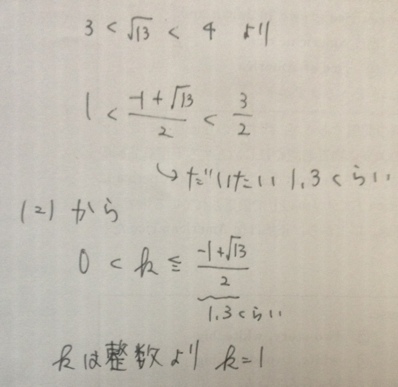 3 < √13 < 4 より
1 < (-1+√13)/2 < 3/2
↳ だいたい 1.3くらい
(2) から
0 < k ≦ (-1+√13)/2
1.3くらい
kは整数より k=1